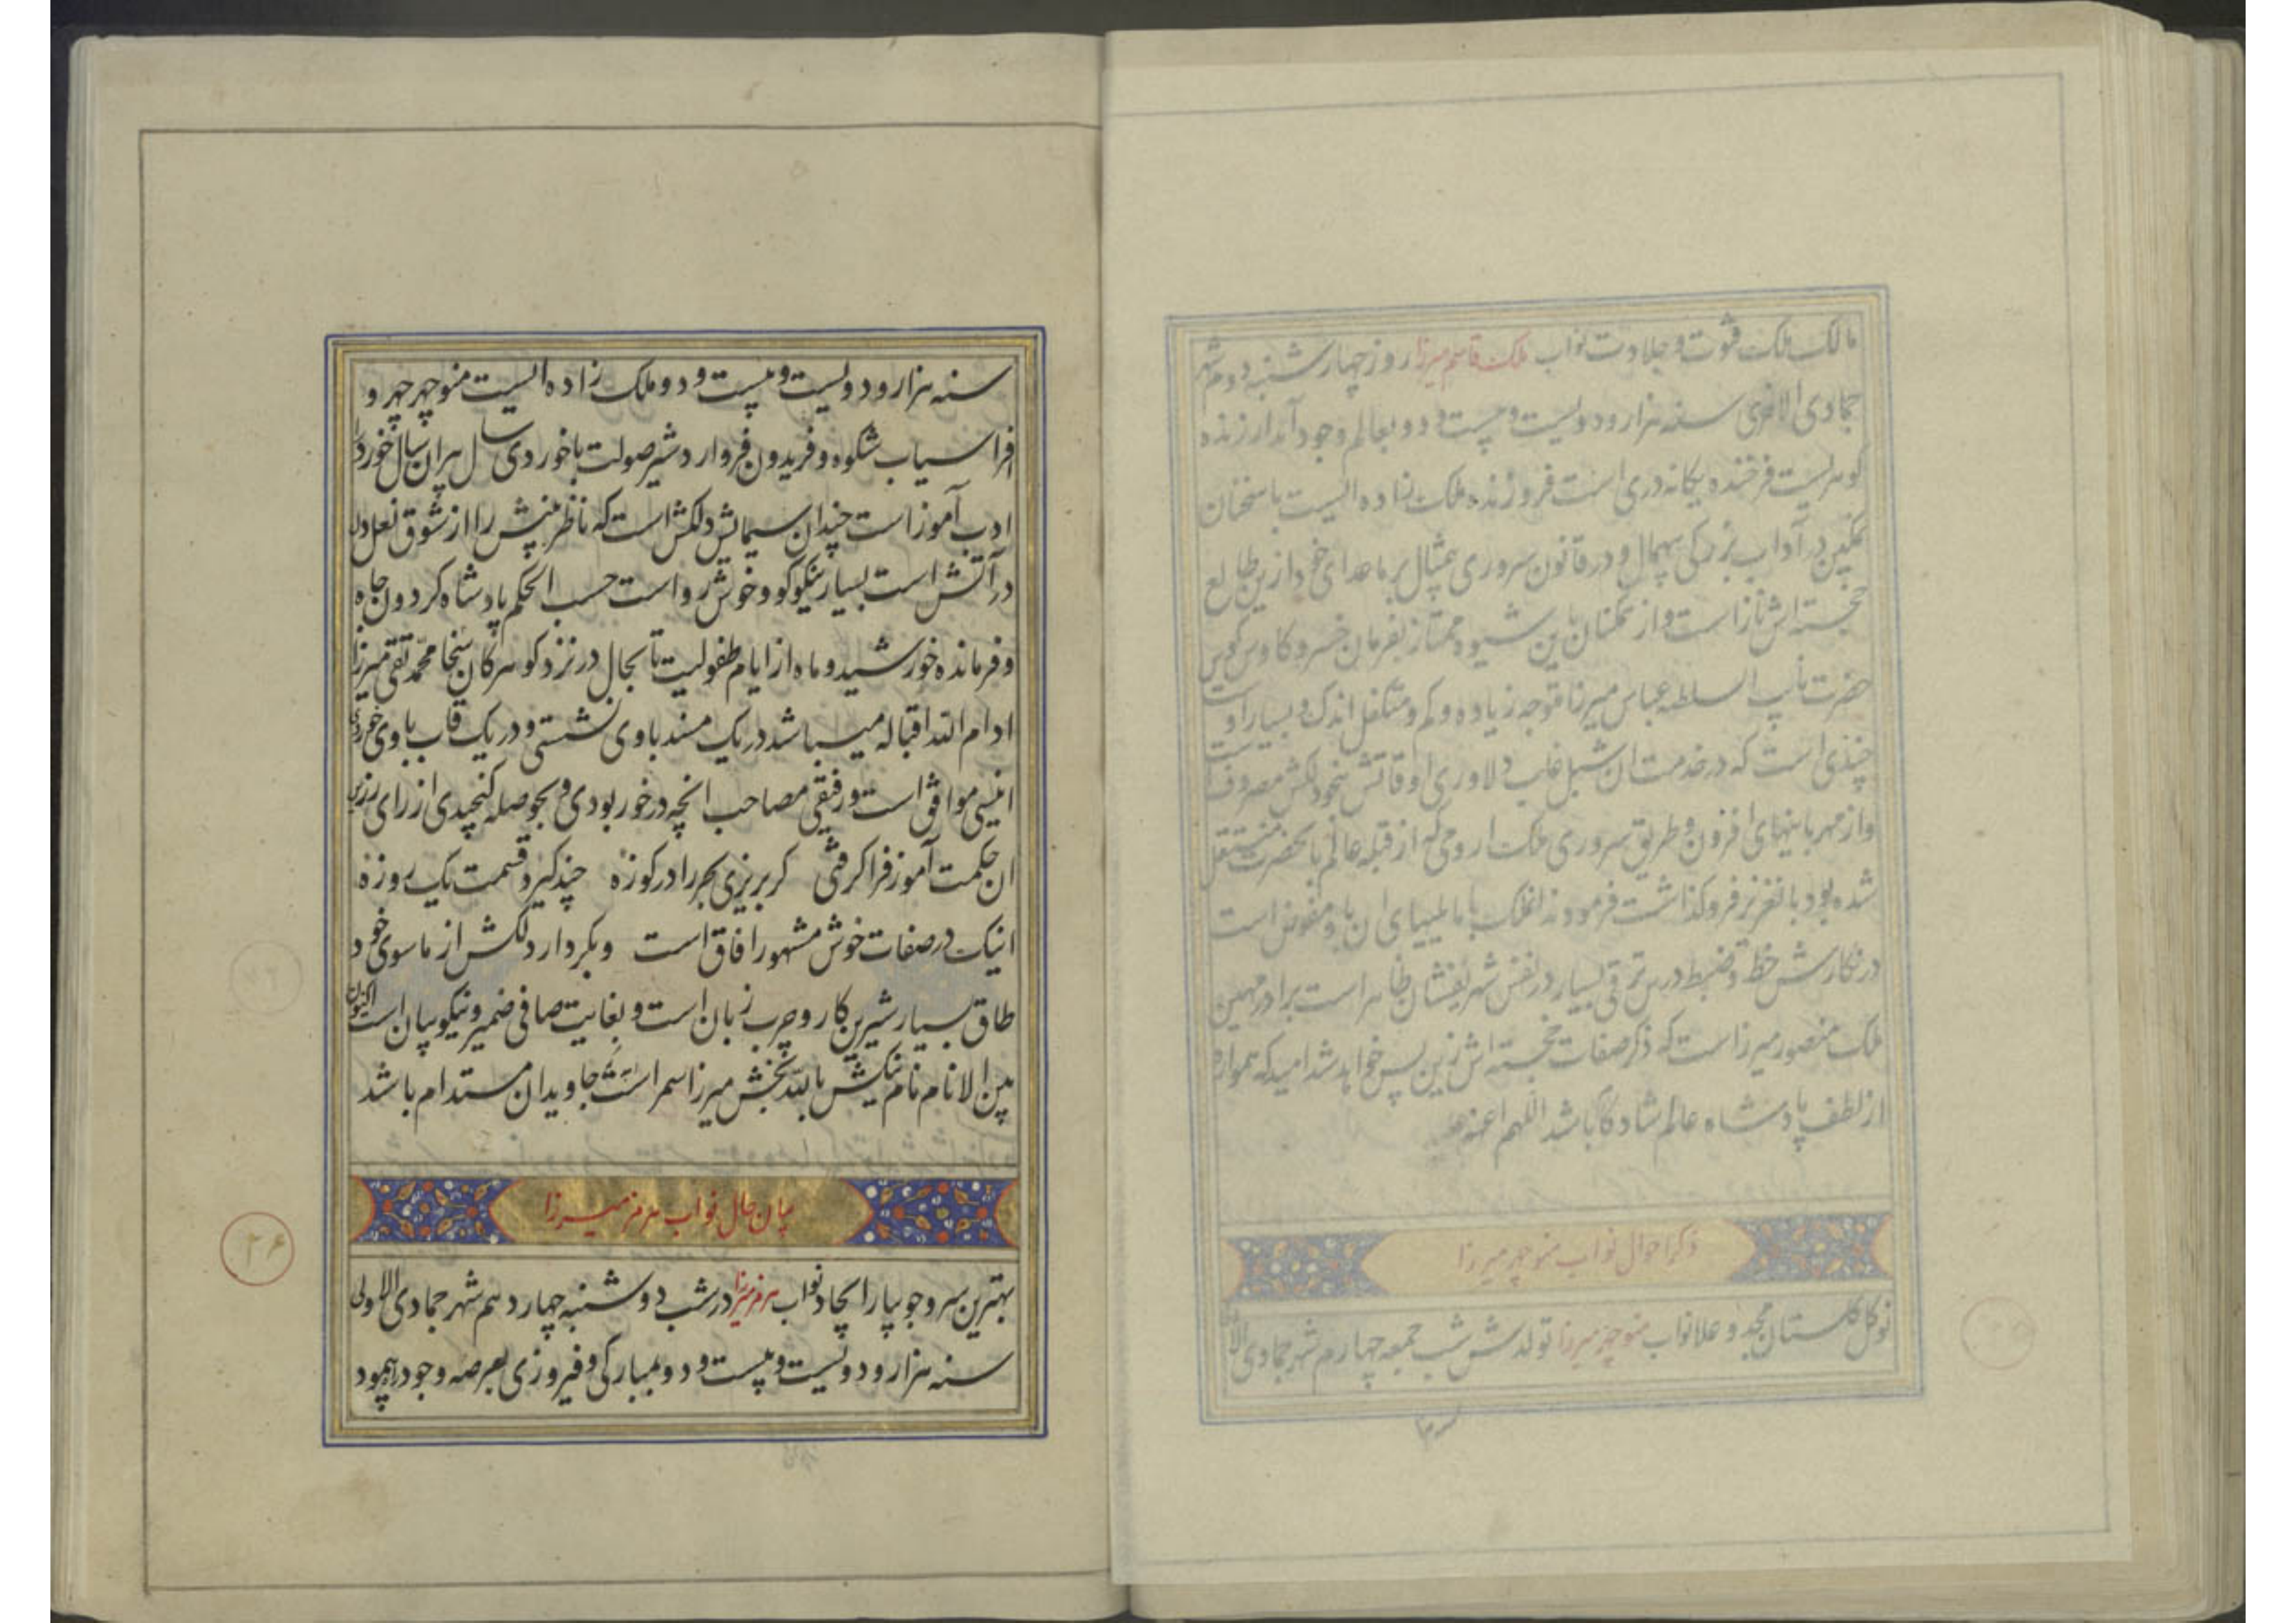 مالک ملک فتوت و جلادت نواب ملک قاسم میرزا روز چهارشنبه دوم شهر
جمادی الاخری سنه هزار و دویست و بیست و دو بعالم وجود آمد ارزنده
گوهریست فرخنده یگانه دری است فروزنده ملک زاده ایست با سخنان
نمکین در آداب بزرگی بیهمال و در قانون سروری بیمثال بر ماعدای خود ازین طالع
خجسته اش ناز است و از همگنان باین شیوه ممتاز بفرمان خسرو کاوس کوس
حضرت نایب السلطنه عباس میرزا متوجه زیاده و کم و متکفل اندک و بسیار اوست
چندی است که در خدمت ان شبل غلب دلاوری اوقاتش بنحو دلکش مصروف است
و از مهربانیهای افزون و طریق سروری ملک ارومی که از قبله عالم بانحضرت منتقل
شده بود بانعزیز فرو گذاشت فرمودند انملک با مالیهای ان باو مفوض است
در نگارش خط و ضبط درس ترقی بسیار در نفس شریفشان ظاهر است برادر مهین
ملک منصور میرزاست که ذکر صفات خجسته اش زین پس خواهد شد امید که همواره
از لطف پادشاه عالم شاد کام باشد اللهم
ذکر احوال نواب منوچهر میرزا
نوگل گلستان مجد و علا نواب منوچهر میرزا تولدش شب جمعه چهارم شهر جمادی
سنه
سنه هزار و دویست و بیست و دو ملک زاده ایست منوچهر چهر و
افراسیاب شکوه و فریدون فر و اردشیر صولت با خوردی سال پیران سال خورد را
ادب آموز است چندان سیمایش دلکش است که ناظر بینش را از شوق نعل دل
در آتش است بسیار نیکو گو و خوش رو است حسب الحکم پادشاه گردون جاه
و فرمانده خورشید و ماه از ایام طفولیت تا بحال در نزد گوهر کان سخا محمد تقی میرزا
ادام الله اقباله میباشد در یک مسند با وی نشستی و در یک قاب با وی خوردی
انیسی موافق است و رفیقی مصاحب انچه در خور بودی و بحوصله گنجیدی از رای رزین
ان حکمت آموز فرا گرفتی گر بریزی بحر را در کوزه چند گیرد قسمت یک روزه
اینک در صفات خوش مشهور افاق است و بکردار دلکش از ماسوی خود
طاق بسیار شیرین کار و چرب زبان است و بغایت صافی ضمیر و نیکو بیان است اکنون
بین الانام نام نیکش بالله بخش میرزا سمر است جاویدان مستدام باشد
بیان حال نواب هرمز میرزا
بهترین سرو جویبار ایجاد نواب هرمز میرزا در شب دوشنبه چهاردهم شهر جمادی الاولی
سنه هزار و دویست و بیست و دو بمبارکی و فیروزی بعرصه وجود راه پیمود
۲۶